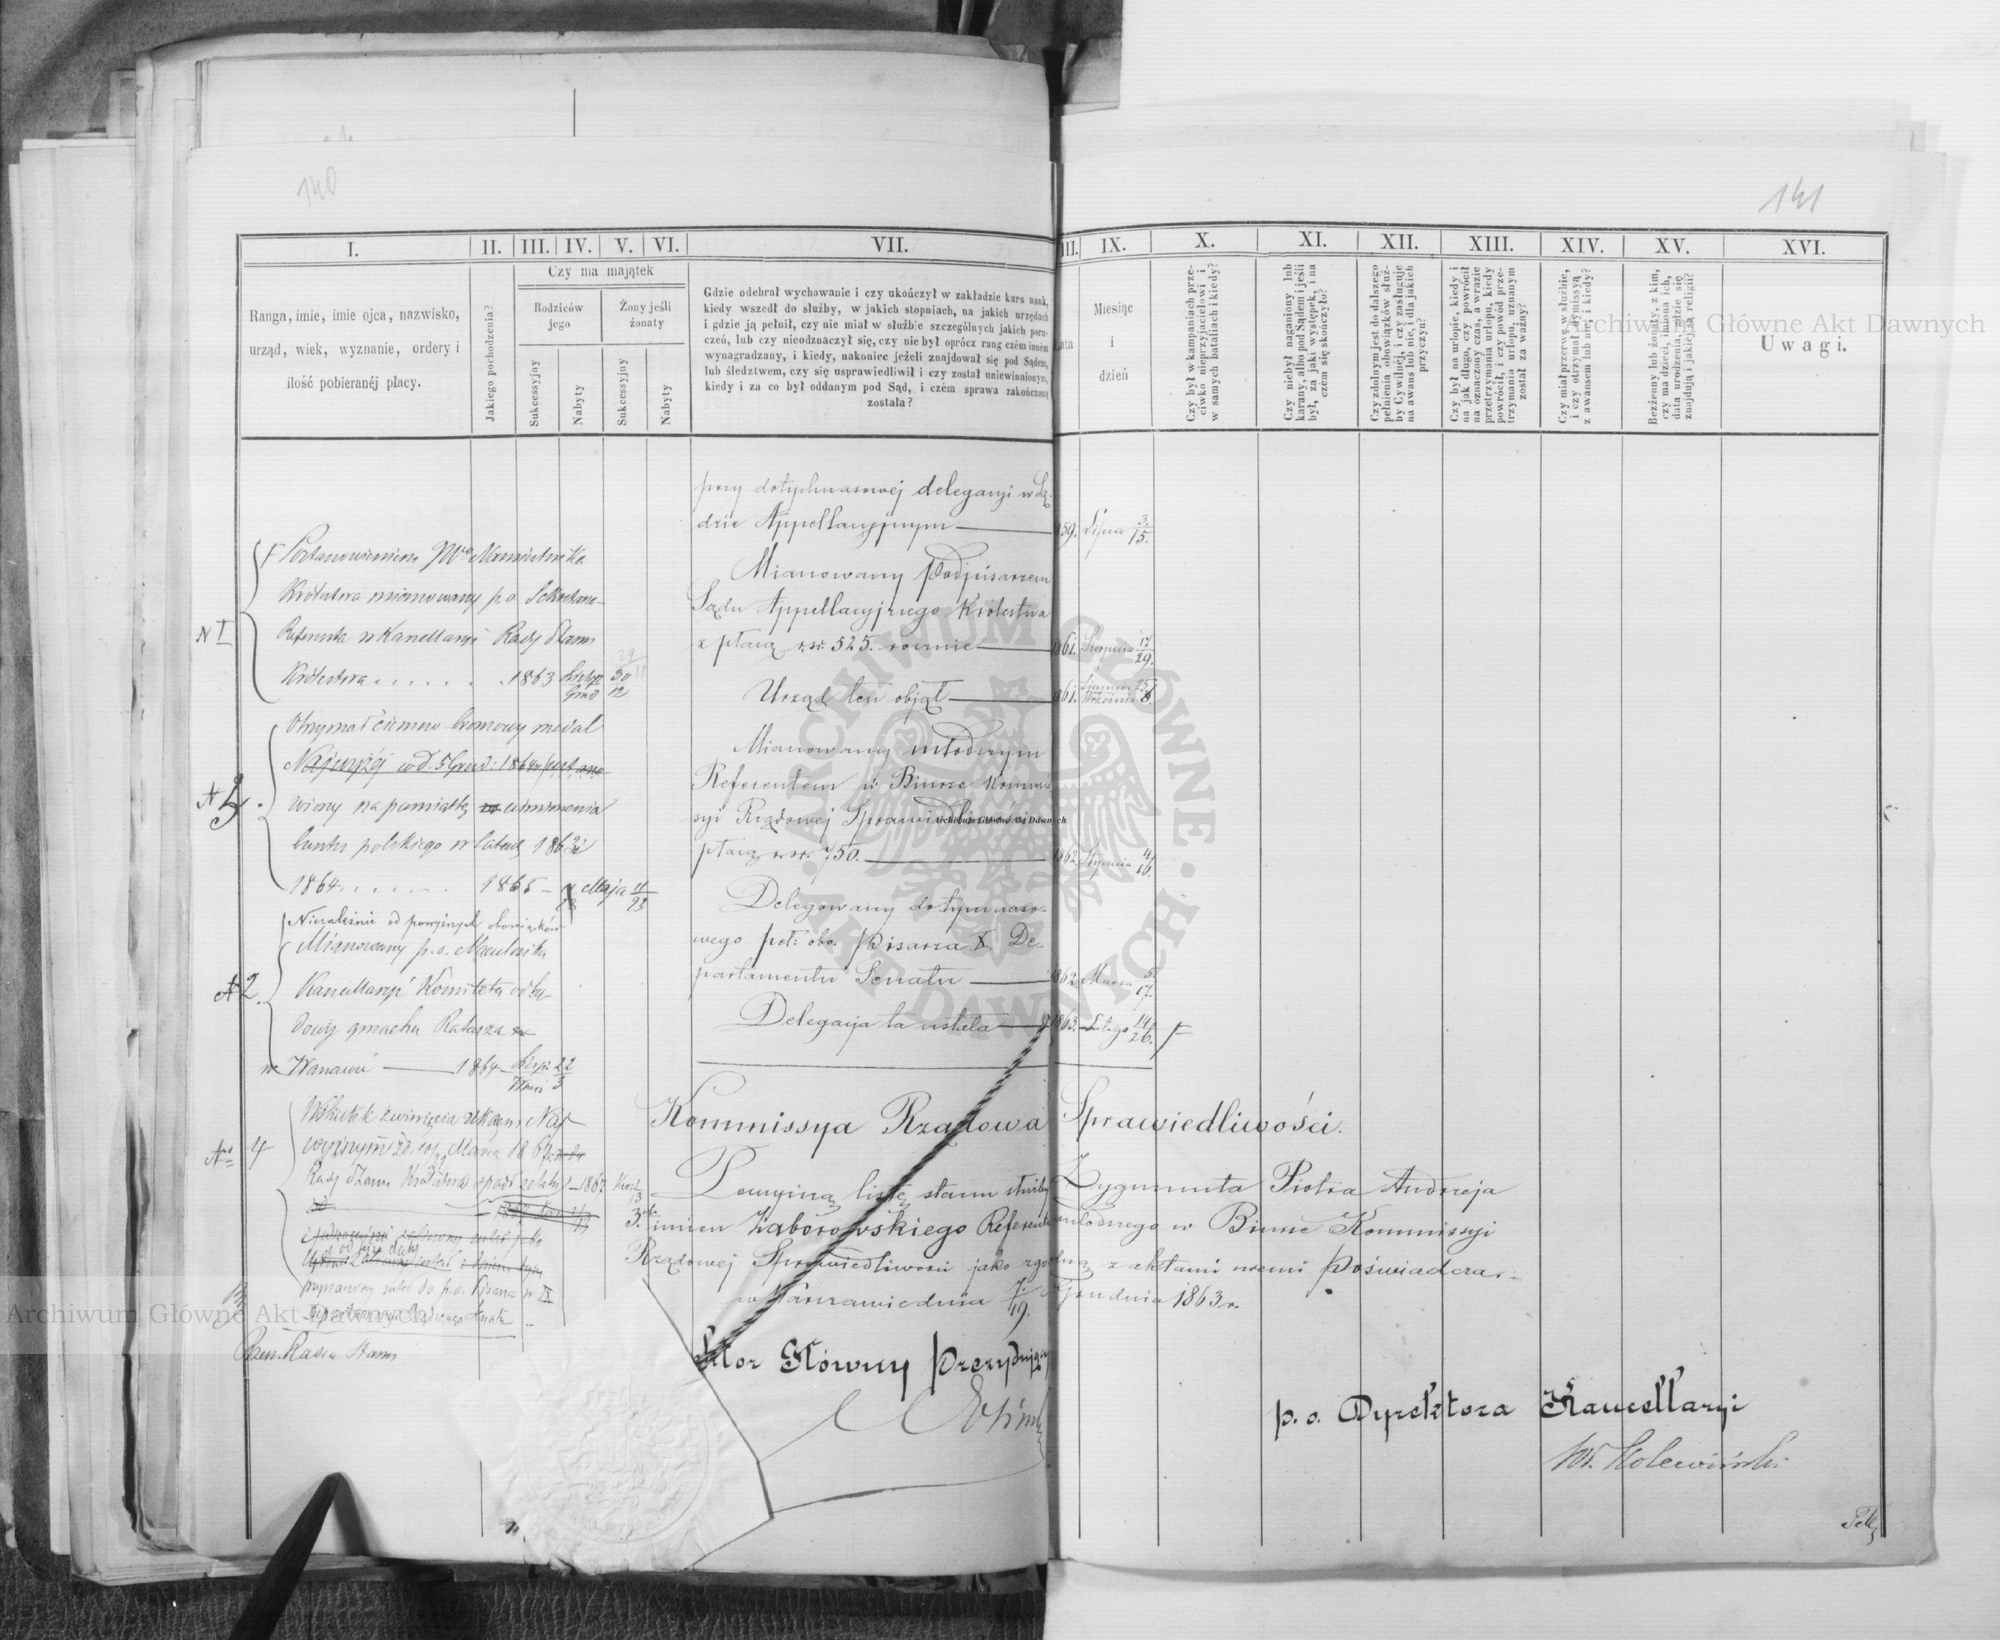 140
141
I. II. III. IV. V. VI. VII. III. IX. X. XI. XII. XIII. XIV. XV. XVI.
Ranga, imie, imie ojca, nazwisko,
urząd, wiek, wyznanie, ordery i
ilość pobieranéj płacy.
Jakiego pochodzenia?
Czy ma majątek
Rodziców
jego
Żony jeśli
żonaty
Sukcessyjny
Nabyty
Sukcessyjny
Nabyty
Gdzie odebrał wychowanie i czy ukończył w zakładzie kurs nauk,
kiedy wszedł do służby, w jakich stopniach, na jakich urzędach
i gdzie ją pełnił, czy nie miał w służbie szczególnych jakich poru-
czeń, lub czy nieodznaczył się, czy nie był oprócz rang czém inném
wynagradzany, i kiedy, nakoniec jeżeli znajdował się pod Sądem,
lub śledztwem, czy się usprawiedliwił i czy został uniewinnionym,
kiedy i za co był oddanym pod Sąd, i czém sprawa zakończoną
została?
Lata
Miesiąc
i
dzień
Czy był w kampaniach prze-
ciwko nieprzyjacielowi i
w samych bataliach i kiedy?
Czy niebył naganiony lub
karany, albo pod Sądem i jeśli
był, za jaki występek, i na
czém się skończyło?
Czy zdolnym jest do dalszego
pełnienia obowiązków służ-
by Cywilnéj, i czy zasługuje
na awans lub nie, i dla jakich
przyczyn?
Czy był na urlopie, kiedy i
na jak długo, czy powrócił
na oznaczony czas, a w razie
przetrzymania urlopu, kiedy
powrócił, i czy powód prze-
trzymania urlopu, uznanym
został za ważny?
Czy miał przerwę w służbie,
i czy otrzymał dymissyą
z awansem lub nie, i kiedy?
Bezżenny lub żonaty, z kim,
czy ma dzieci, imiona ich,
data urodzenia, gdzie się
znajdują i jakiej są religii?
Uwagi.
przy dotychczasowéj delegacyi w Są-
dzie Appellacyjnym 1859. Lipca 3/15.
Mianowany Podpisarzem
Sądu Appellacyjnego Królestwa
z płacą rsr. 525. rocznie 1861. Sierpnia 17/29.
Urząd ten objął 1861. Sierpnia 25/Września 6.
Mianowany młodszym
Referentem w Biurze Kommis-
syi Rządowéj Sprawiedliwości
płacą rsr. 750. 1862. Stycznia 4/16.
Delegowany do tymczaso-
wego peł: obo. Pisarza X. De-
partamentu Senatu 1862. Marca 5/17.
Delegacya ta ustała 1863. Lutego 14/26.
N I
Postanowieniem Namiestnika
Królestwa mianowany p.o. Sekretarza-
Referenta w Kancellaryi Rady Stanu
Królestwa 1863 Listop 30/Grud 12
N 3.
Otrzymał ciemno bronzowy medal
Najwyżéj w d. 1864 r. ustano-
wiony na pamiątkę uśmierzenia
buntu polskiego w latach 1863 i
1864 1865 Maja 11/23
N 2.
Niezależnie od powyższych obowiązków
Mianowany p.o. Naczelnika
Kancellaryi Komitetu odbu-
dowy gmachu Ratusza
w Warszawie 1864 Sierp: 22/Wrześ 3
N 4
Wskutek zwinięcia ukazem Naj-
wyższym Marca 1867
Rady Stanu Królestwa spadł z etatu 1867
od téj daty
do p.o. Pisarza w IX
Rada Stanu
Kommissya Rządowa Sprawiedliwości.
Powyższą listę stanu służby Zygmunta Piotra Andrzeja
3ch imion Zaborowskiego Referenta młodszego w Biurze Kommissyi
Rządowéj Sprawiedliwości jako zgodną z aktami swemi poświadcza.
w Warszawie dnia 7/19. Grudnia 1863 r.
Główny Prezydujący
p. o. Dyrektora Kancellaryi
Archiwum Główne Akt Dawnych
Archiwum Główne Akt Dawnych
Archiwum Główne Akt Dawnych
ARCHIWUM GŁÓWNE AKT DAWNYCH